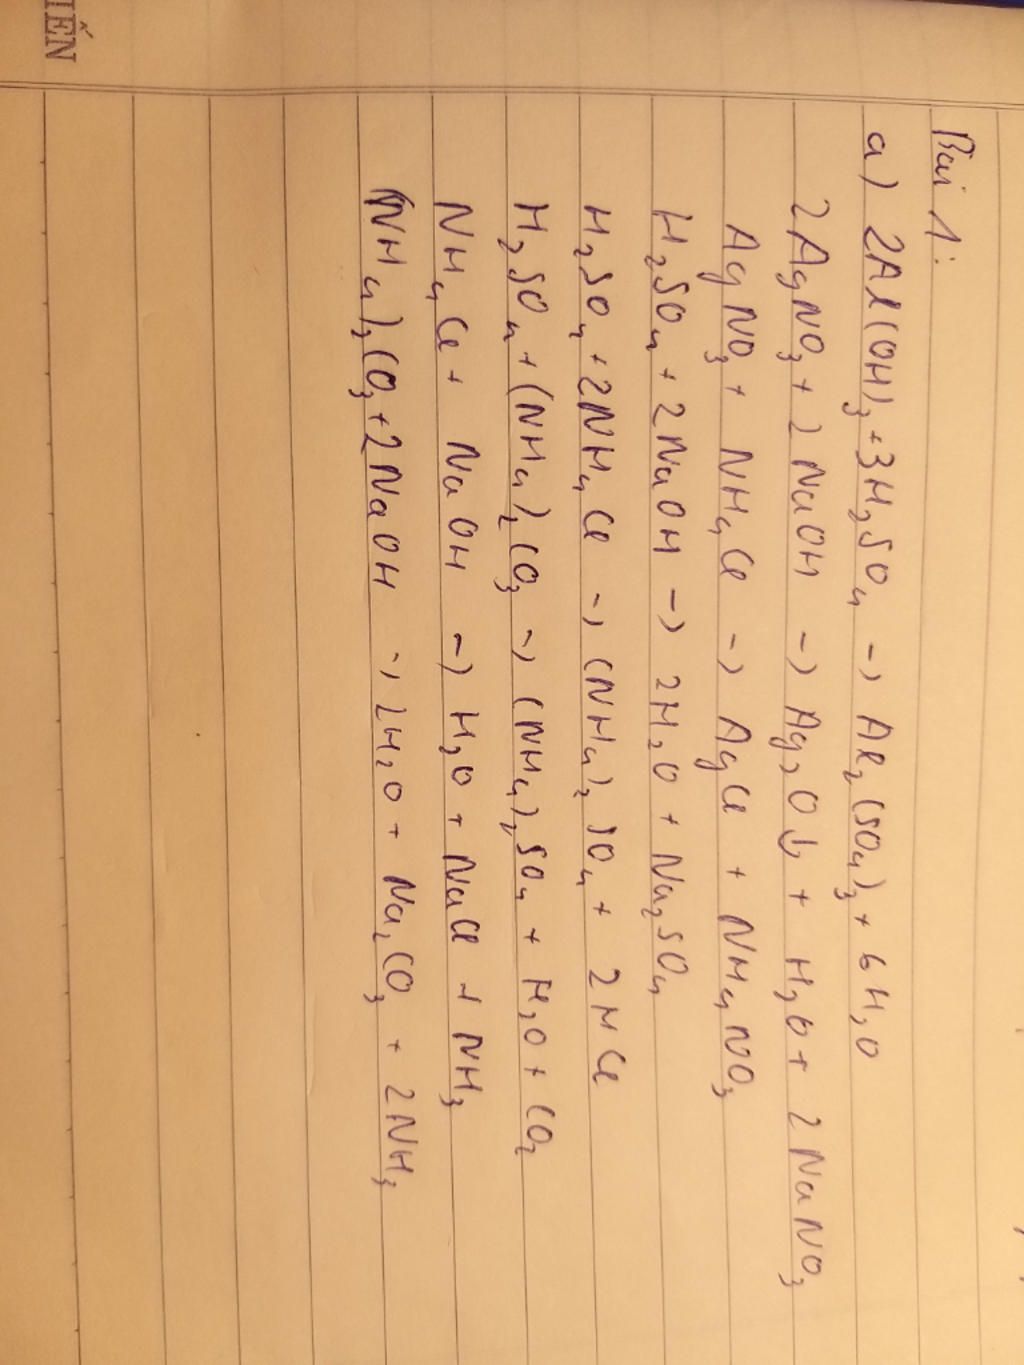 IẾN
Bài 1:
a) 2Al(OH)₃ + 3H₂SO₄ → Al₂(SO₄)₃ + 6H₂O
2AgNO₃ + 2NaOH → Ag₂O↓ + H₂O + 2NaNO₃
AgNO₃ + NH₄Cl → AgCl + NH₄NO₃
H₂SO₄ + 2NaOH → 2H₂O + Na₂SO₄
H₂SO₄ + 2NH₄Cl → (NH₄)₂SO₄ + 2HCl
H₂SO₄ + (NH₄)₂CO₃ → (NH₄)₂SO₄ + H₂O + CO₂
NH₄Cl + NaOH → H₂O + NaCl + NH₃
(NH₄)₂CO₃ + 2NaOH → 2H₂O + Na₂CO₃ + 2NH₃